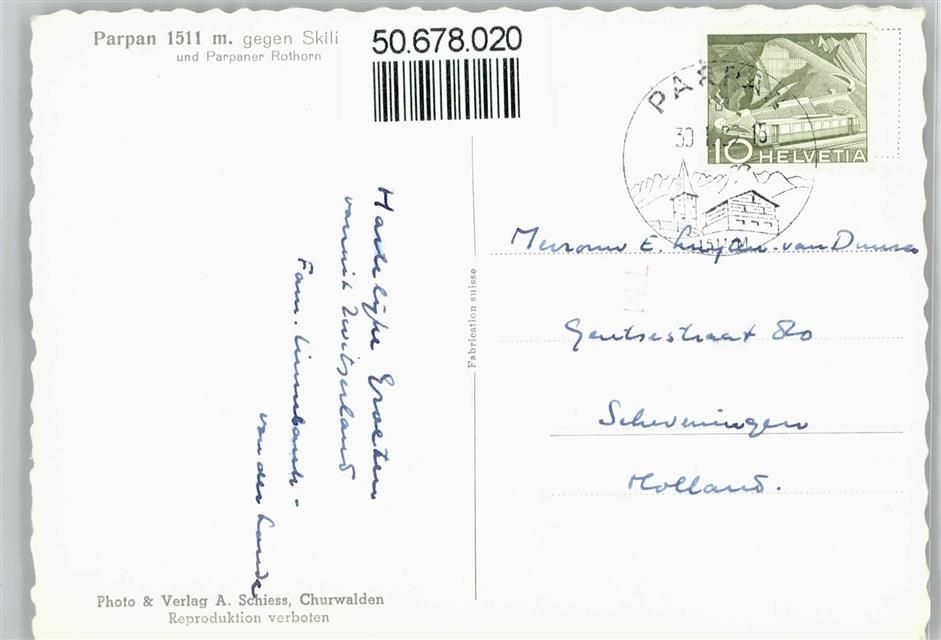 Parpan 1511 m. gegen Skili
und Parpaner Rothorn
50.678.020
PARPAN
30. 15
1511 M
10 HELVETIA
Hartelijke Groeten
vanuit Zwitserland
Fam.
van der
Fabrication suisse
Mevrouw E. van
Gentsestraat 80
Scheveningen
Holland.
Photo & Verlag A. Schiess, Churwalden
Reproduktion verboten